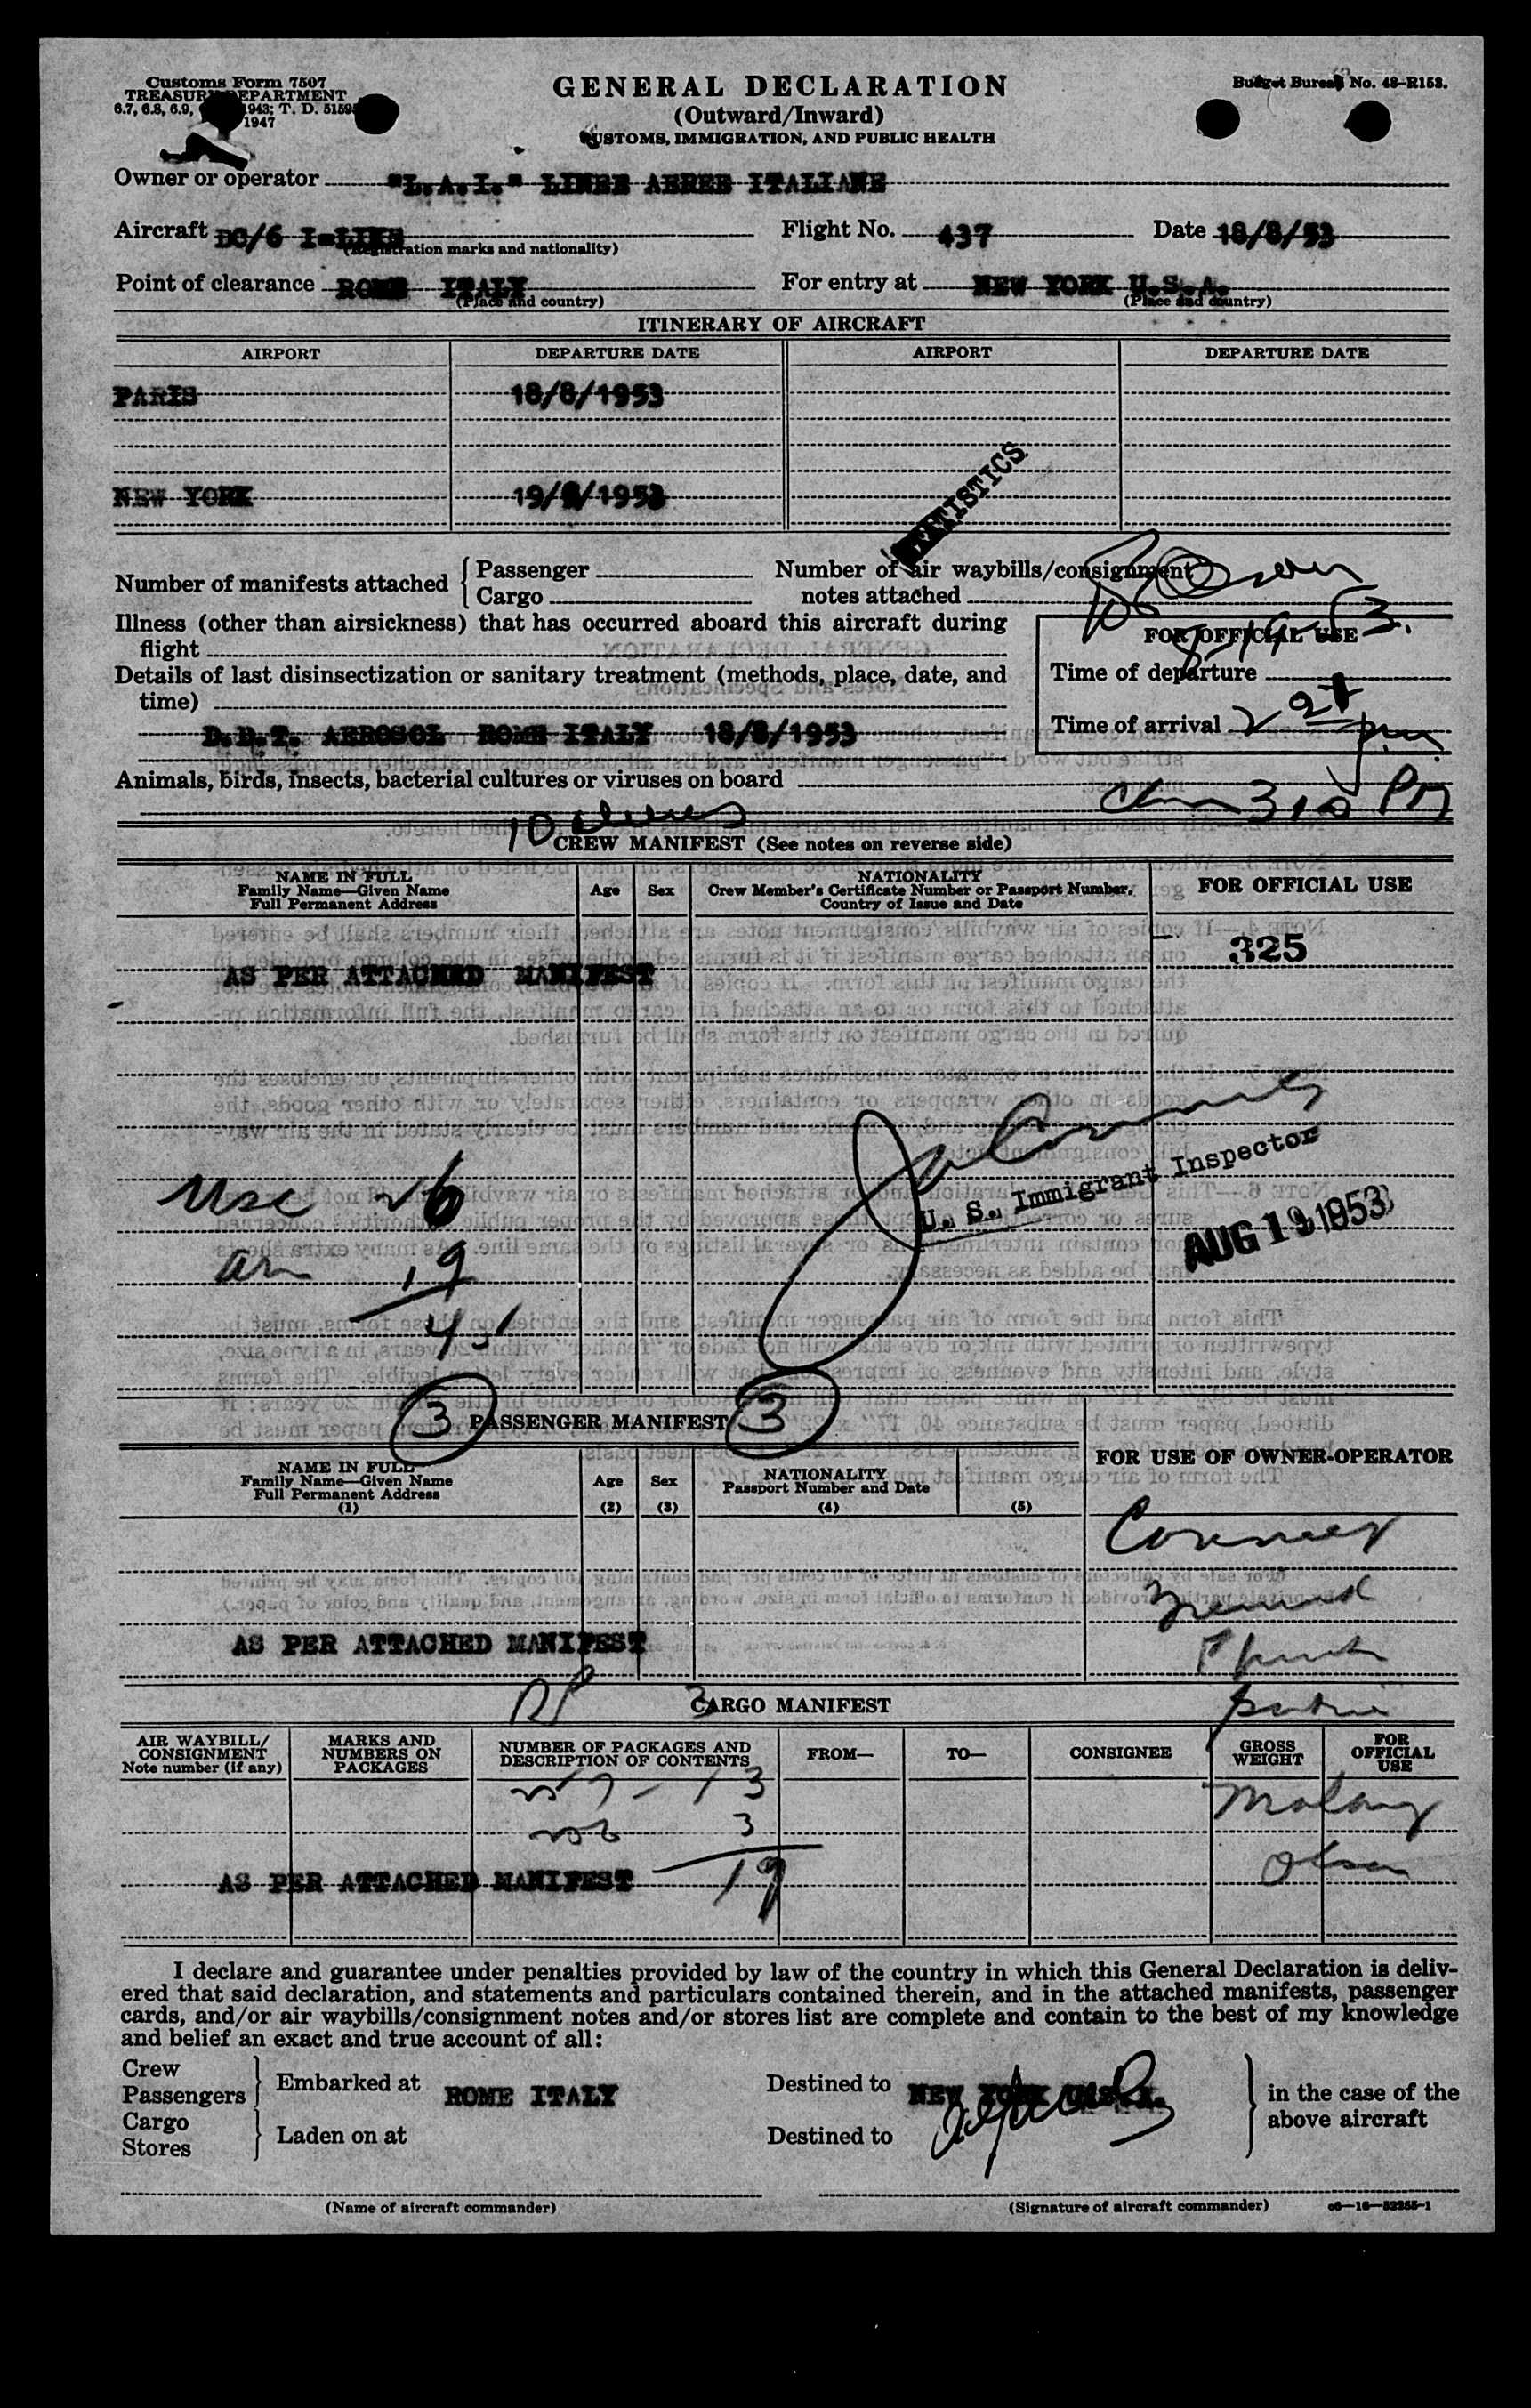 Customs Form 7507
TREASURY DEPARTMENT
6.7, 6.8, 6.9, 1943; T. D. 5159
1947
GENERAL DECLARATION
(Outward/Inward)
CUSTOMS, IMMIGRATION, AND PUBLIC HEALTH
Budget Bureau No. 48-R153.
Owner or operator "L.A.I." LINEE AEREE ITALIANE
Aircraft DC/6 I-LIKE
(Registration marks and nationality)
Flight No. 437
Date 18/8/53
Point of clearance ROME ITALY
(Place and country)
For entry at NEW YORK U.S.A.
(Place and country)
ITINERARY OF AIRCRAFT
AIRPORT DEPARTURE DATE AIRPORT DEPARTURE DATE
PARIS 18/8/1953
NEW YORK 19/8/1953
STATISTICS
Number of manifests attached { Passenger
Cargo
Number of air waybills/consignment
notes attached
Illness (other than airsickness) that has occurred aboard this aircraft during
flight
Details of last disinsectization or sanitary treatment (methods, place, date, and
time)
D.D.T. AEROSOL ROME ITALY 18/8/1953
FOR OFFICIAL USE
8-19-53.
Time of departure
Time of arrival 2 27 p.m.
Animals, birds, insects, bacterial cultures or viruses on board
310 PM
10
CREW MANIFEST (See notes on reverse side)
NAME IN FULL
Family Name—Given Name
Full Permanent Address
Age
Sex
NATIONALITY
Crew Member's Certificate Number or Passport Number,
Country of Issue and Date
FOR OFFICIAL USE
325
AS PER ATTACHED MANIFEST
U. S. Immigrant Inspector
AUG 19 1953
Usc 26
19
45
3 PASSENGER MANIFEST 3
NAME IN FULL
Family Name—Given Name
Full Permanent Address
(1)
Age
(2)
Sex
(3)
NATIONALITY
Passport Number and Date
(4)
(5)
FOR USE OF OWNER-OPERATOR
AS PER ATTACHED MANIFEST
RP 3
CARGO MANIFEST
AIR WAYBILL/
CONSIGNMENT
Note number (if any)
MARKS AND
NUMBERS ON
PACKAGES
NUMBER OF PACKAGES AND
DESCRIPTION OF CONTENTS
FROM—
TO—
CONSIGNEE
GROSS
WEIGHT
FOR
OFFICIAL
USE
13
3
19
Olsen
AS PER ATTACHED MANIFEST
I declare and guarantee under penalties provided by law of the country in which this General Declaration is deliv-
ered that said declaration, and statements and particulars contained therein, and in the attached manifests, passenger
cards, and/or air waybills/consignment notes and/or stores list are complete and contain to the best of my knowledge
and belief an exact and true account of all:
Crew
Passengers } Embarked at ROME ITALY
Destined to NEW YORK U.S.A.
Cargo
Stores } Laden on at
Destined to
} in the case of the
above aircraft
(Name of aircraft commander)
(Signature of aircraft commander)
c6—16—52255-1